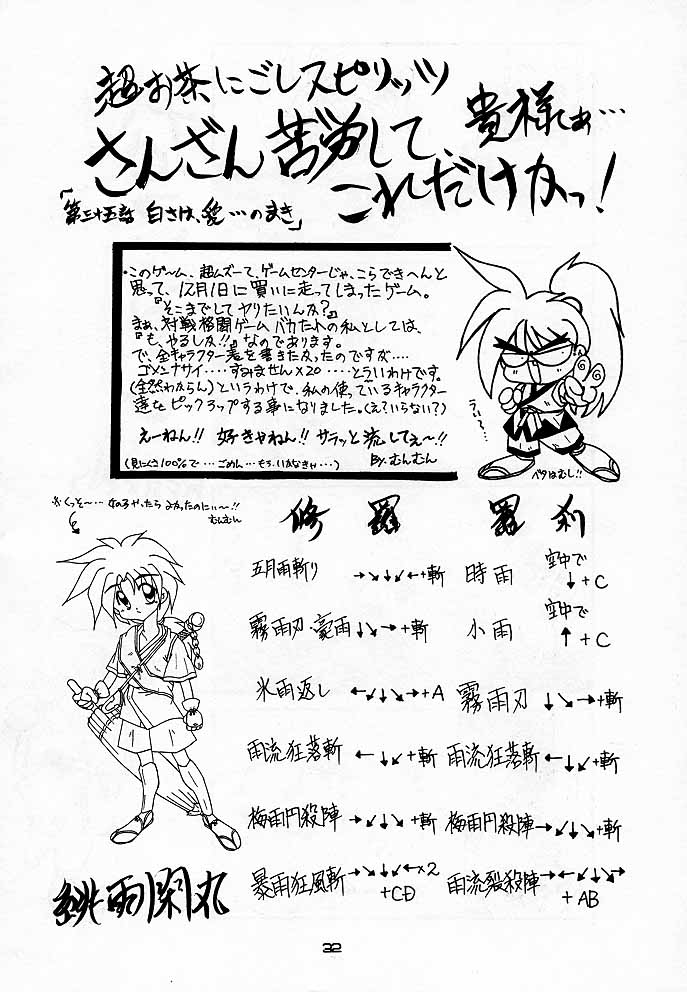 超お茶にごしスピリッツ
さんざん苦労して、
貴様ぁ…
これだけかっ!
「第三十五話 白さは、愛…のまき」
・このゲーム、超ムズーて、ゲームセンターじゃ、こらできへんと
思って、12月1日に買いに走ってしまったゲーム。
『そこまでしてヤりたいんか?』
まぁ、対戦格闘ゲームバカたれの私としては、
『も、やるしか!!』なのであります。
で、全キャラクター表を書きたかったのですが….
ゴメンナサイ….すみません×20 …とういわけです。
(全然わからん)というわけで、私の使っているキャラクター
達をピックアップする事になりました。(え?いらない?)
えーねん!! 好きやねん!! サラッと流してぇ〜!!
(見にくさ100%で…ごめん…もう、いかなきゃ…)
By.むんむん
ベタはむし!!
※くっそ〜…
よかったのにぃ〜!!
むんむん
修羅
羅刹
五月雨斬り →↘↓↙←+斬
時雨 空中で↓+C
霧雨刃・豪雨 ↓↘→+斬
小雨 空中で↑+C
氷雨返し ←↙↓↘→+A
霧雨刃 ↓↘→+斬
雨流狂落斬 ←↓↙+斬
雨流狂落斬 ←↓↙+斬
梅雨円殺陣 →↙↓↘+斬
梅雨円殺陣 →↙↓↘+斬
暴雨狂風斬 →↘↓↙←×2+CD
雨流裂殺陣 →←↙↓↘→+AB
緋雨閑丸
32